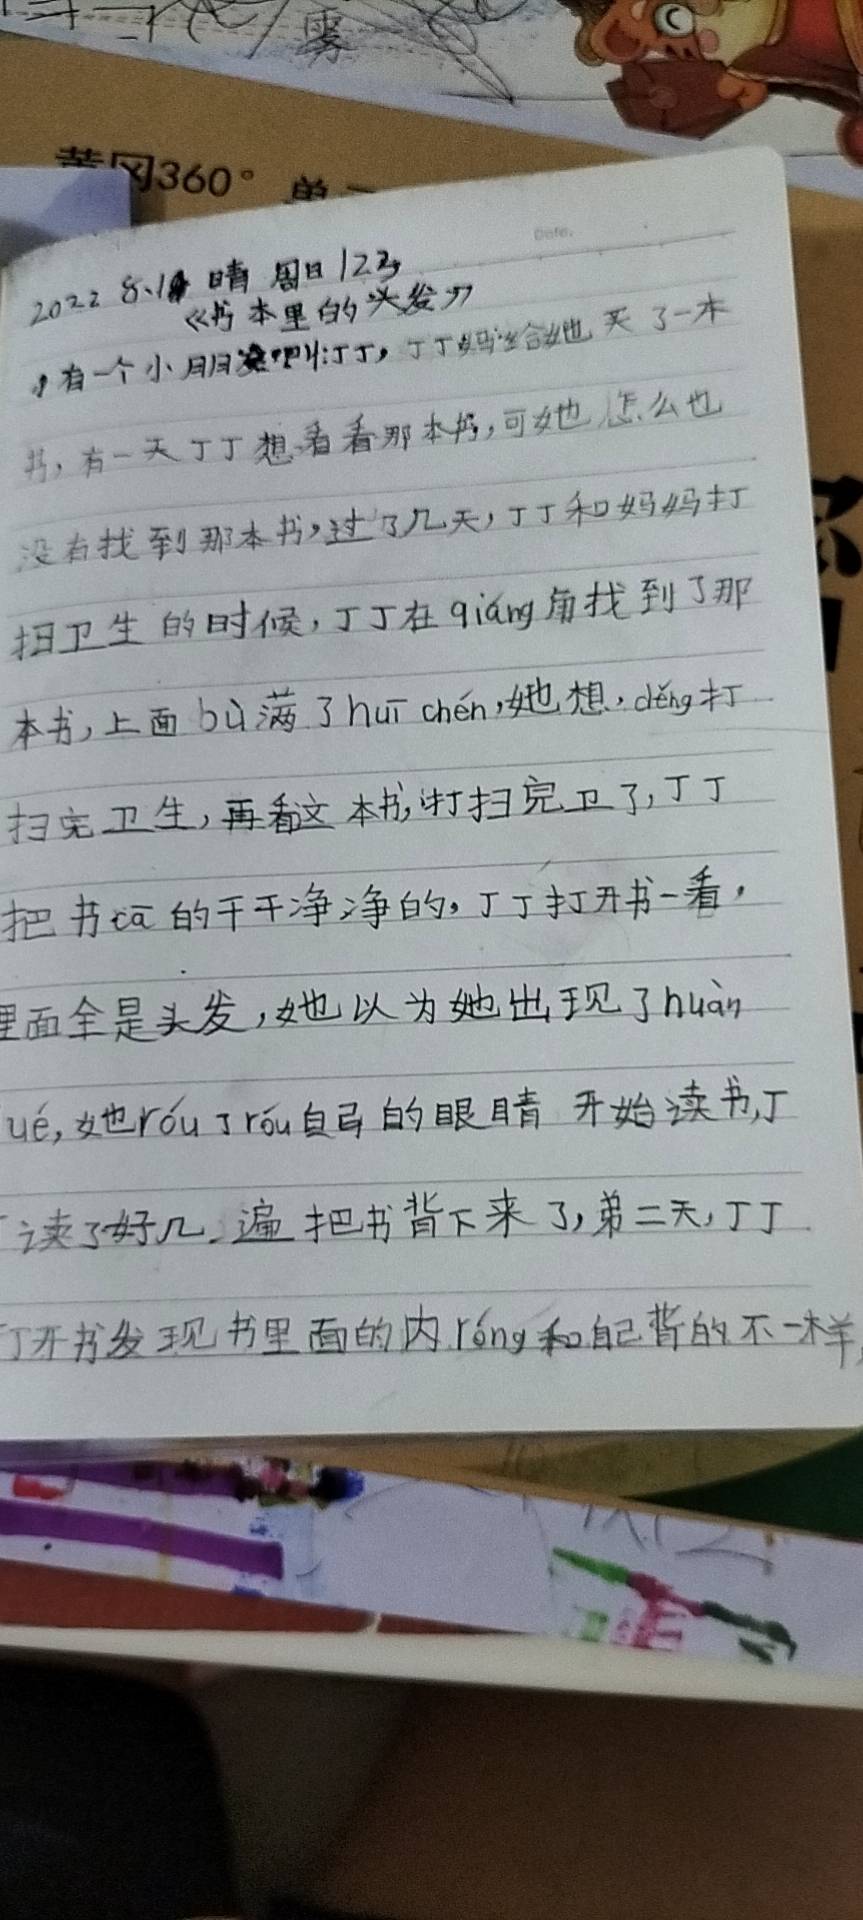 雾
黄冈360° 单
Date.
2022 8.1 晴 周日 123
《书本里的头发》
有一个小朋友叫:丁丁,丁丁妈妈给她买了一本
书,有一天丁丁想看看那本书,可她怎么也
没有找到那本书,过了几天,丁丁和妈妈打
扫卫生的时候,丁丁在qiáng角找到了那
本书,上面bù满了huī chén,她想,děng打
扫完卫生,再看这本书,打扫完卫了,丁丁
把书cā的干干净净的,丁丁打开书一看,
里面全是头发,她以为她出现了huàn
ué,她róu了róu自己的眼睛 开始读书,丁
丁读了好几遍把书背下来了,第二天,丁丁
打开书发现书里面的内róng和自己背的不一样,